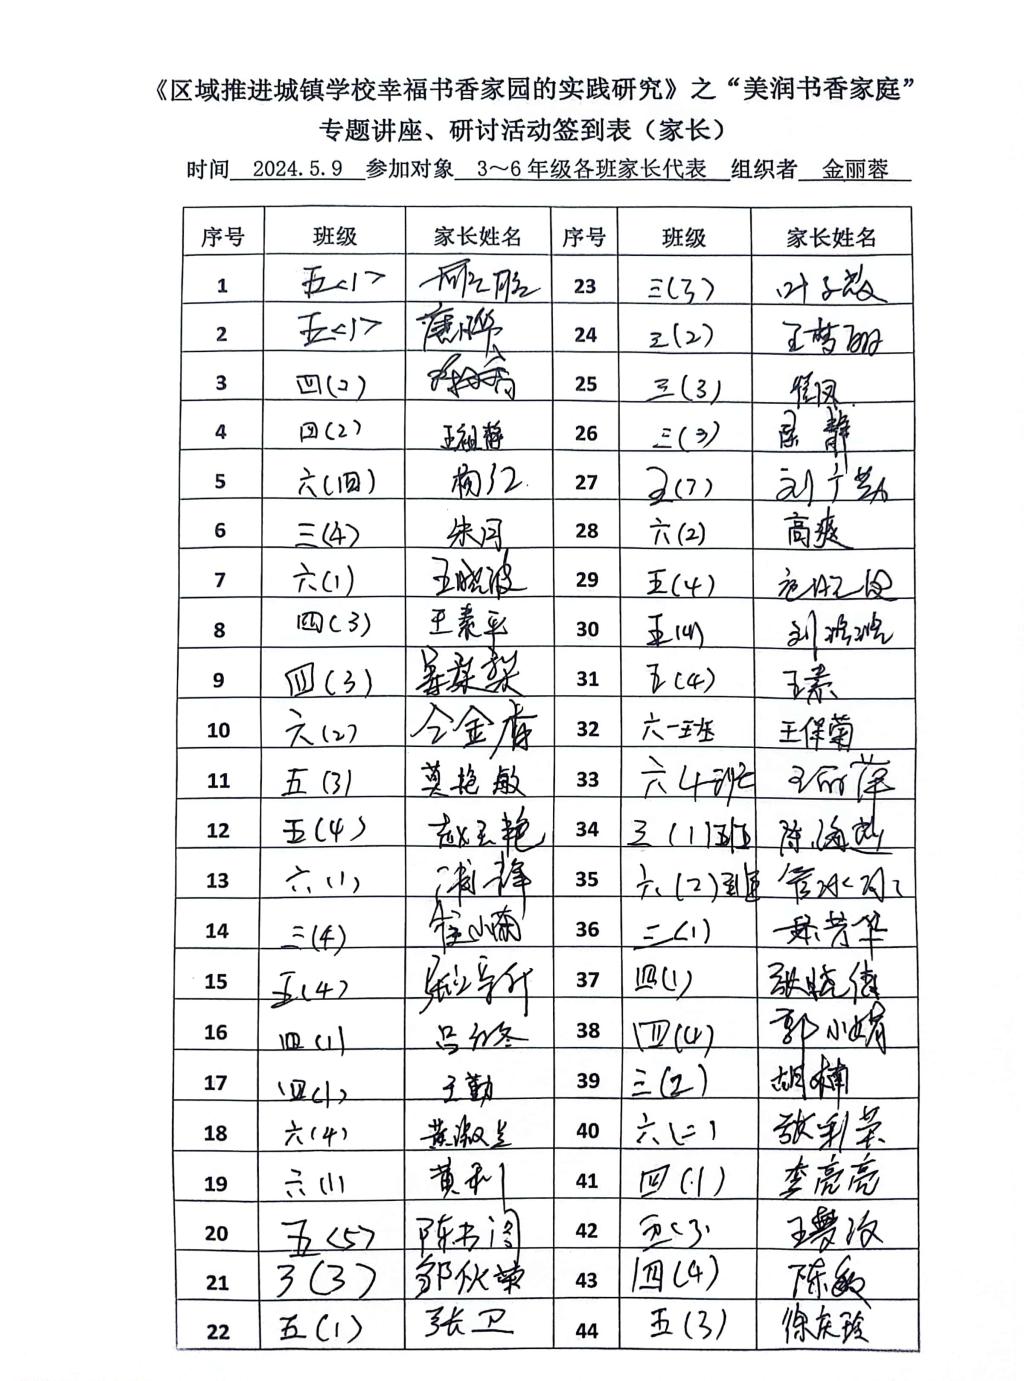 《区域推进城镇学校幸福书香家园的实践研究》之“美润书香家庭”
专题讲座、研讨活动签到表（家长）
时间 2024.5.9 参加对象 3～6年级各班家长代表 组织者 金丽蓉
序号 班级 家长姓名 序号 班级 家长姓名
1 五<1> 23 三(3)
2 五<1> 24 三(2) 王梦丽
3 四(2) 25 三(3)
4 四(2) 王祖静 26 三(3) 静
5 六(四) 杨红 27 五(7) 刘广勤
6 三(4) 朱月 28 六(2) 高爽
7 六(1) 王晓波 29 五(4)
8 四(3) 王素平 30 五(4) 刘
9 四(3) 31 五(4) 王素
10 六(2) 仝金 32 六一班 王保菊
11 五(3) 莫艳敏 33 六4班 王丽萍
12 五(4) 赵玉艳 34 三(1)班 陈海
13 六(1) 35 六(2)班 管
14 三(4) 小南 36 三<1> 芳华
15 五(4) 37 四(1) 张晓倩
16 四(1) 吕 38 四(4) 郭小娟
17 四(1) 王勤 39 三(2) 胡楠
18 六(4) 黄淑兰 40 六(二) 张利荣
19 六(1) 黄利 41 四(1) 李亮亮
20 五<5> 陈书 42 五<3> 王梦
21 3(3) 邹伙荣 43 四(4) 陈敏
22 五(1) 张卫 44 五(3) 徐庆玲